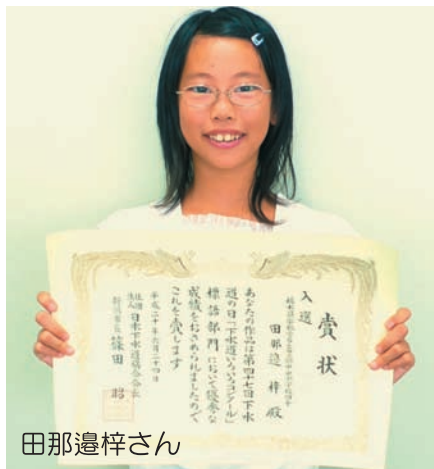 賞状
入選
田那邉 梓 殿
あなたの作品は第四十七回下水
道の日「下水道いろいろコンクール」
標語部門において優秀な
成績をおさめられましたので
これを賞します
平成二十年六月二十四日
社団法人 日本下水道協会会長
新潟市長 篠田 昭
田那邉梓さん